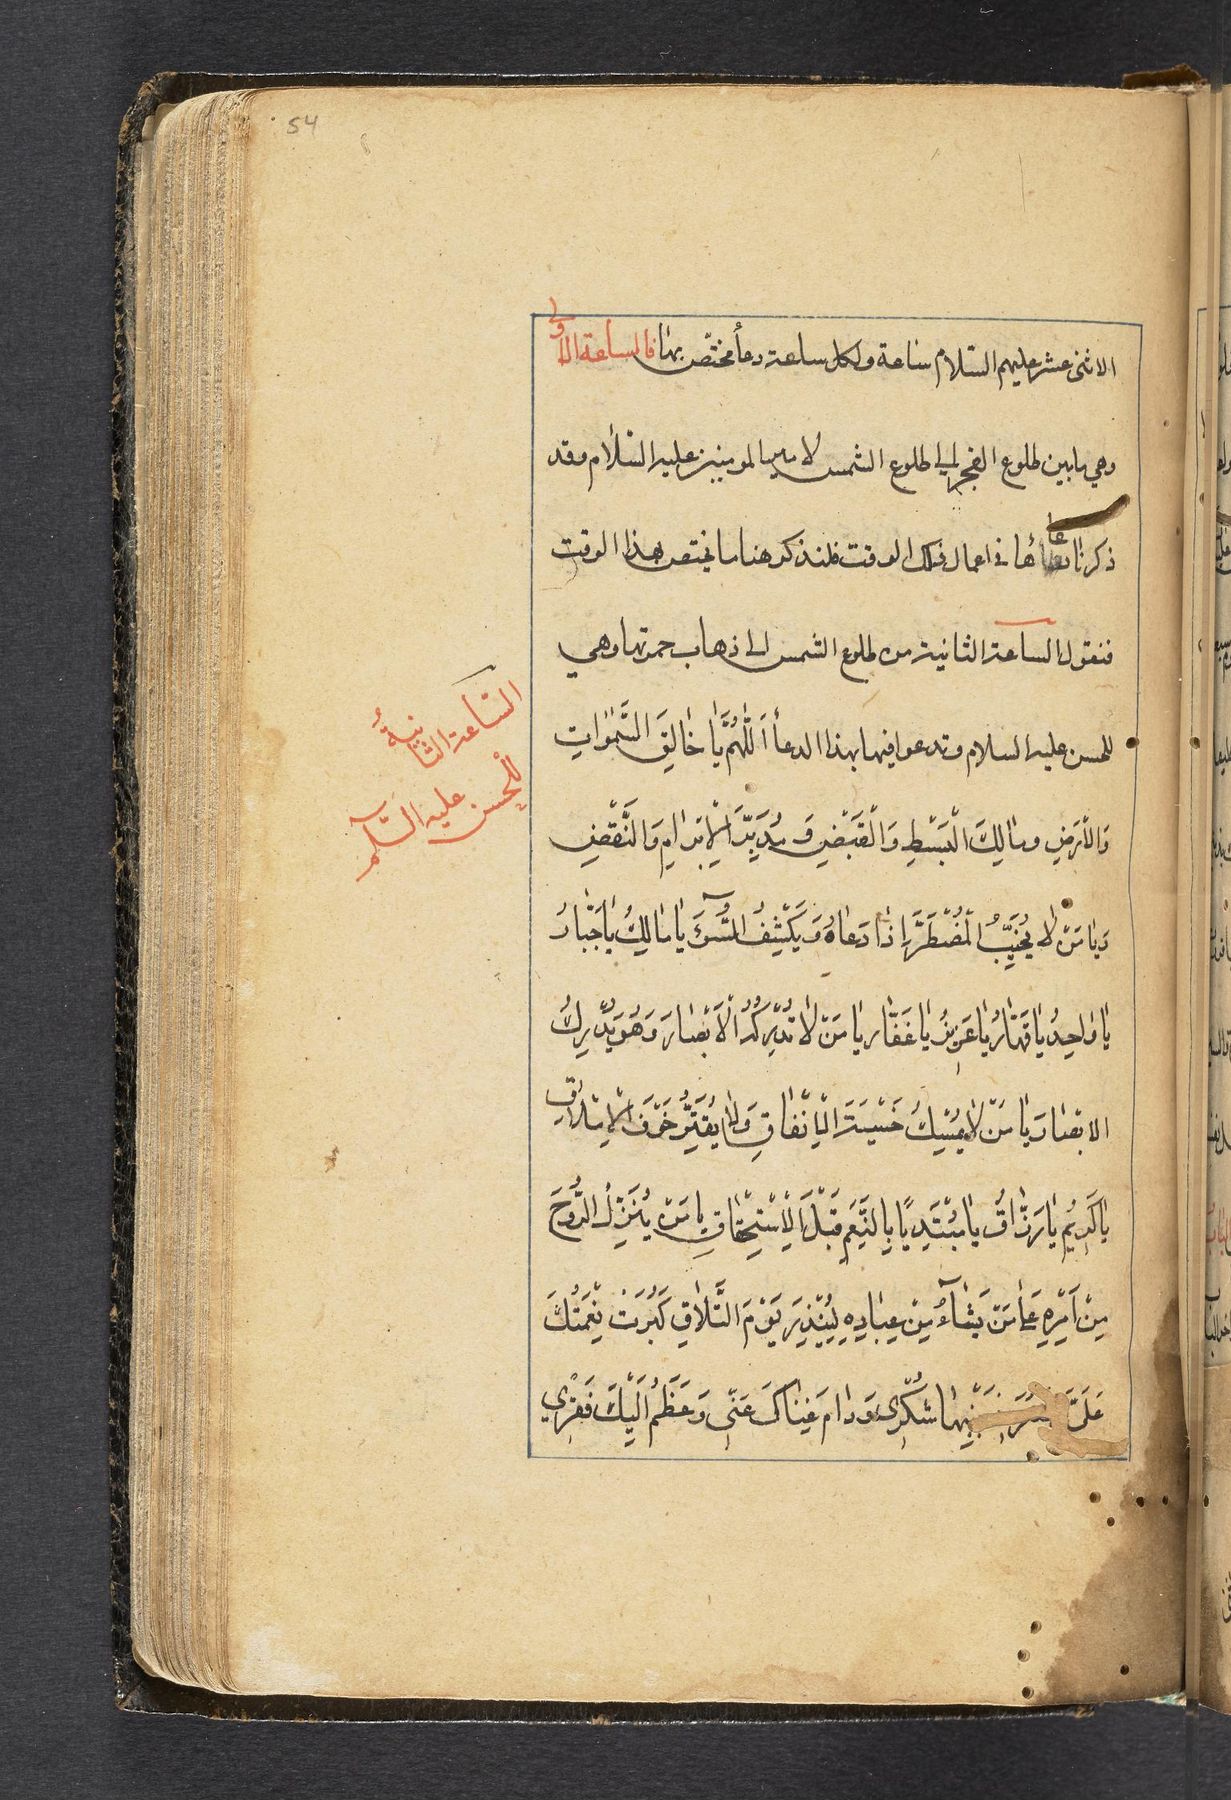 54
الاثنى عشر عليهم السّلام ساعة ولكل ساعة دعأ مختصّ بها فالساعة الأولى
وهي مابين طلوع الفجر الى طلوع الشمس لامير المومنين عليه السّلام وقد
ذكرنا دعاءها فى اعمال ذلك الوقت فلنذكر هنا ما يختص بهذا الوقت
فنقول الساعة الثانية من طلوع الشمس الى ذهاب حمرتها وهي
للحسن عليه السلام وتدعوا فيها بهذا الدعأ اَللّٰهُمَّ يَا خَالِقَ السَّمٰوَاتِ
وَالأَرْضِ ومَالِكَ الْبَسْطِ وَالْقَبْضِ وَ مُدَبِّرَ الْاِبْرَامِ وَالنَّقْضِ
وَيَا مَنْ لا يُخَيِّبُ الْمُضْطَرَّ اِذَا دَعَاهُ وَ يَكْشِفُ السُّوٓءَ يَا مَالِكُ يَا جَبَّارُ
يَا وَاحِدُ يَا قَهَّارُ يَا عَزِيزُ يَا غَفَّار يَا مَنْ لَا تُدْرِكُهُ الْاَبْصَارَ وَهُوَ يُدْرِكُ
الابْصَارَ يَا مَنْ لَا يُمْسِكُ خَشْيَةَ الْاِنْفَاقِ وَلَا يُقَتِّرُ خَوْفَ الْاِمْلَاقِ
يَا كَرِيمُ يَا رَزَّاقُ يَا مُبْتَدِيًا بِالنِّعَمِ قَبْلَ الْاِسْتِحْقَاقِ يَا مَنْ يُنَزِّلُ الرُّوحَ
مِنْ اَمْرِهِ عَلَى مَنْ يَشَآءُ مِنْ عِبَادِهِ لِيُنْذِرَ يَوْمَ التَّلَاقِ كَبُرَتْ نِعْمَتُكَ
عَلَيَّ فِيهَا شُكْرِى وَدَامَ غِنَاكَ عَنّى وَعَظُمَ اِلَيْكَ فَقْرِي
السّاعة الثانيةُ
لِلْحسن عليه السّلم